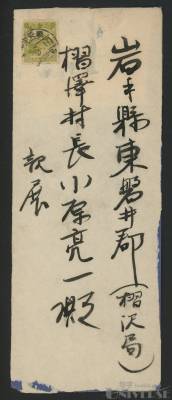 岩手縣東磐井郡(摺沢局)
摺澤村長小原亮一殿
親展